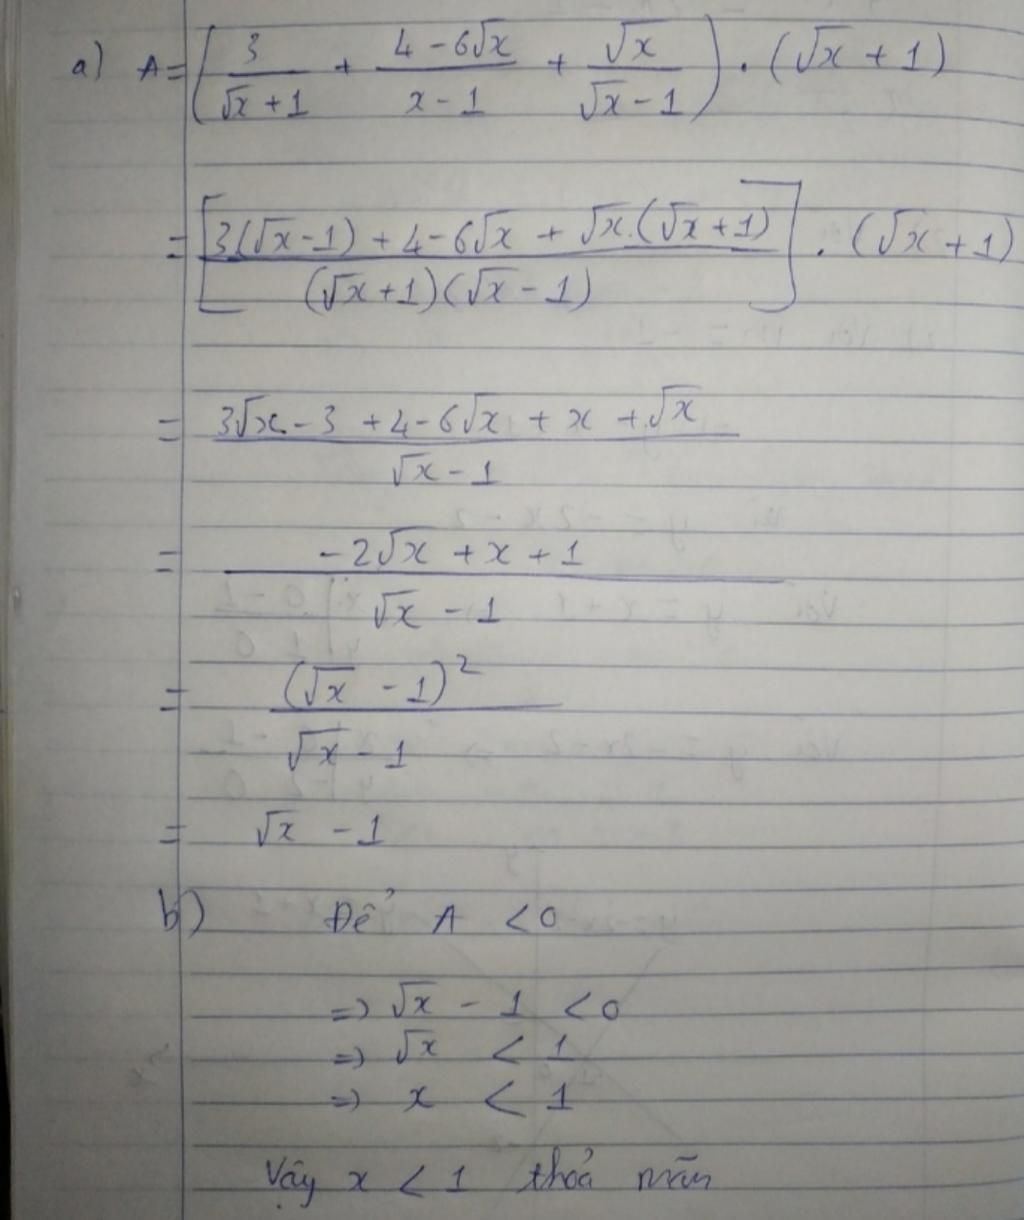 a) A = ( 3/(√x + 1) + (4 - 6√x)/(x - 1) + √x/(√x - 1) ) . (√x + 1)
= [ (3(√x - 1) + 4 - 6√x + √x.(√x + 1))/((√x + 1)(√x - 1)) ] . (√x + 1)
= (3√x - 3 + 4 - 6√x + x + √x)/(√x - 1)
= (-2√x + x + 1)/(√x - 1)
= (√x - 1)²/(√x - 1)
= √x - 1
b) Để A < 0
=) √x - 1 < 0
=) √x < 1
=) x < 1
Vậy x < 1 thoả mãn